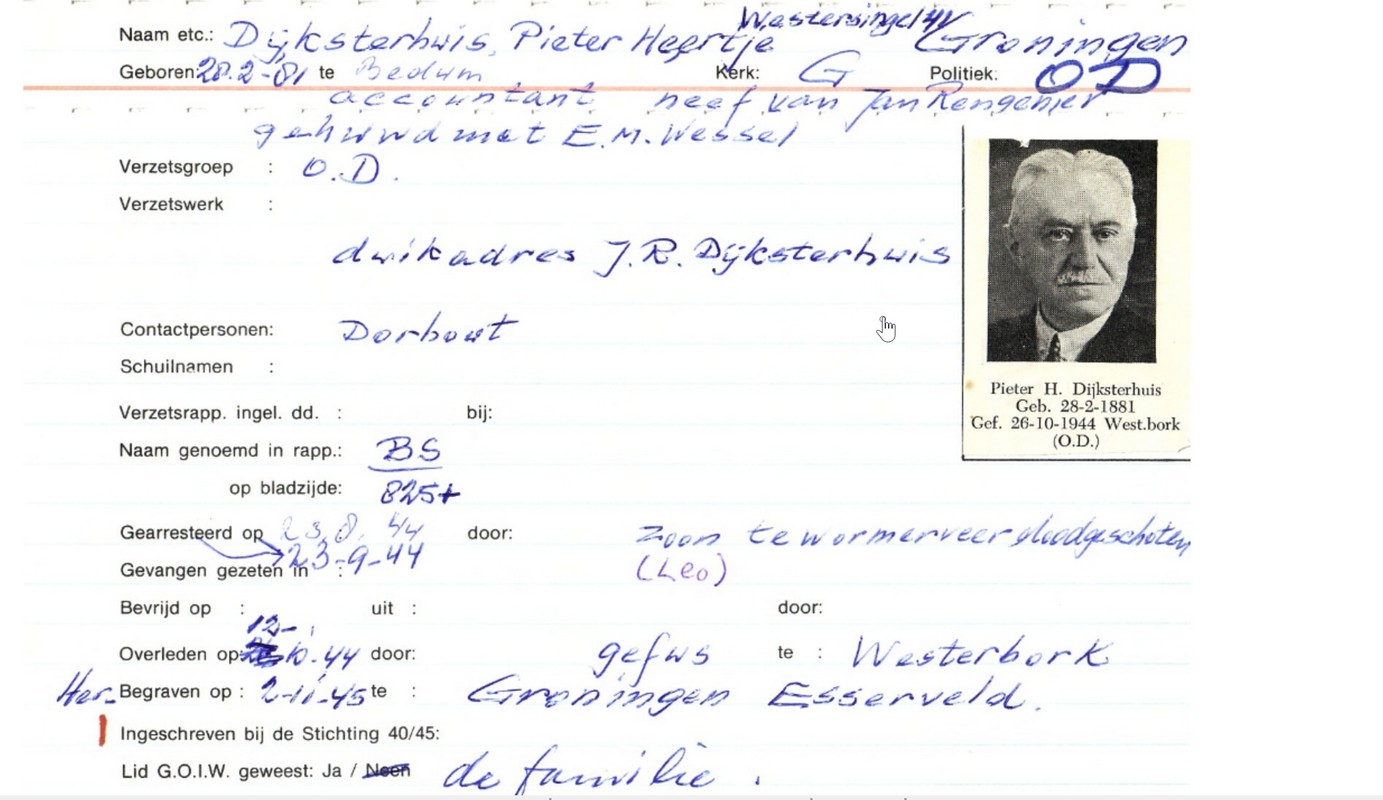 Westersingel 4V
Naam etc.: Dijksterhuis, Pieter Heertje Groningen
Geboren: 28.2-81 te Bedum Kerk: G Politiek: OD
accountant neef van Jan Rengenier
gehuwd met E.M. Wessel
Verzetsgroep : O.D.
Verzetswerk :
duikadres J.R. Dijksterhuis
Contactpersonen: Dorhout
Schuilnamen :
Pieter H. Dijksterhuis
Geb. 28-2-1881
Gef. 26-10-1944 West.bork
(O.D.)
Verzetsrapp. ingel. dd. : bij:
Naam genoemd in rapp.: BS
op bladzijde: 825+
Gearresteerd op 23.8.44 door: zoon te wormerveer doodgeschoten
23-9-44
Gevangen gezeten in : (Leo)
Bevrijd op : uit : door:
12-
Overleden op: 10.44 door: gefus te : Westerbork
Her- Begraven op : 2-11-45 te : Groningen Esserveld.
Ingeschreven bij de Stichting 40/45:
Lid G.O.I.W. geweest: Ja / Neen de familie.